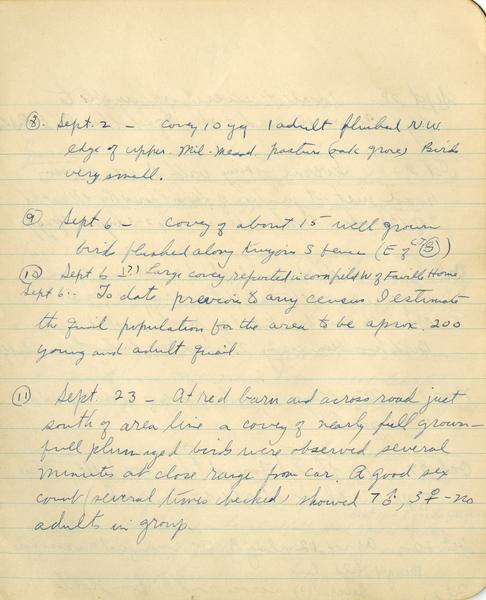 ⑧ Sept. 2 — covey 10 yg 1 adult flushed N.W.
edge of upper Mil. Mead. pasture (oak grove) Birds
very small.
⑨ Sept 6 — covey of about 15 well grown
birds flushed along S fence (E of ⑧)
⑩ Sept 6 (?) Large covey reported in cornfield W of Favill Home.
Sept 6 -. To date previous to any census I estimate
the quail population for the area to be aprox. 200
young and adult quail.
⑪ Sept. 23 — At red barn and across road just
south of area line a covey of nearly full grown —
full plummaged birds were observed several
minutes at close range from car. A good sex
count (several times checked) showed 7 ♂, 3 ♀ — no
adults in group.